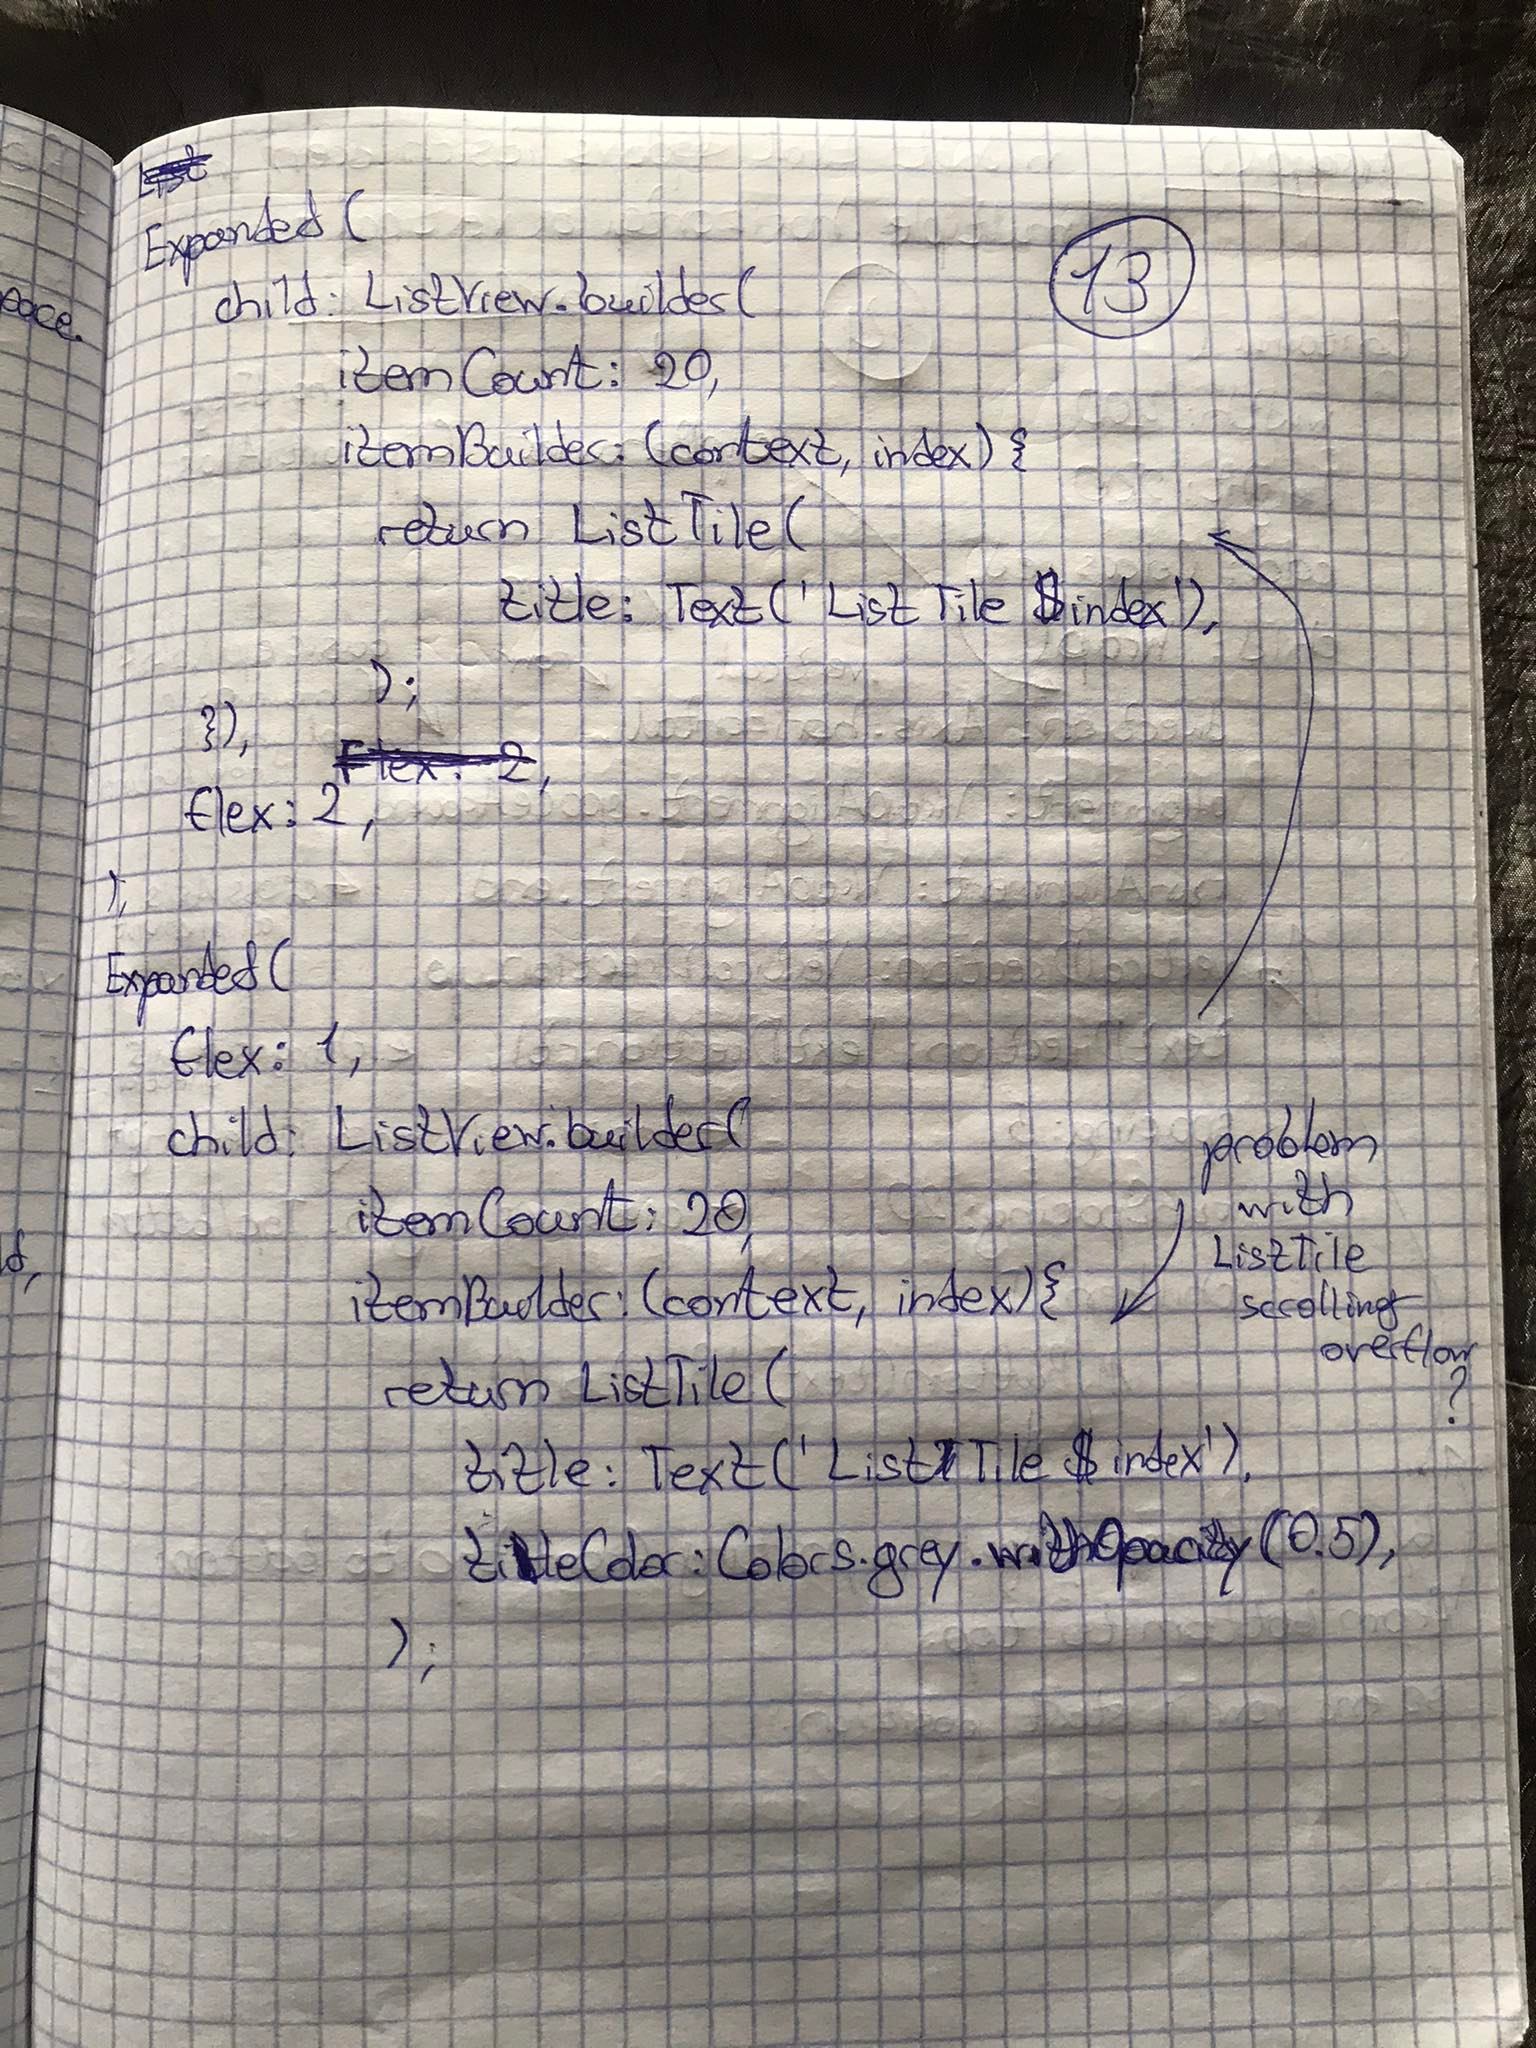 List
Expanded (
13
child: ListView.builder(
itemCount: 20,
itemBuilder: (context, index) {
return ListTile(
title: Text('List Tile $index'),
);
}),
Flex: 2,
flex: 2,
),
Expanded (
flex: 1,
child: ListView.builder(
itemCount: 20,
itemBuilder: (context, index) {
return ListTile (
title: Text('List Tile $index'),
tileColor: Colors.grey.withOpacity (0.5),
);
problem
with
ListTile
scrolling
overflow
?
pace.
d,